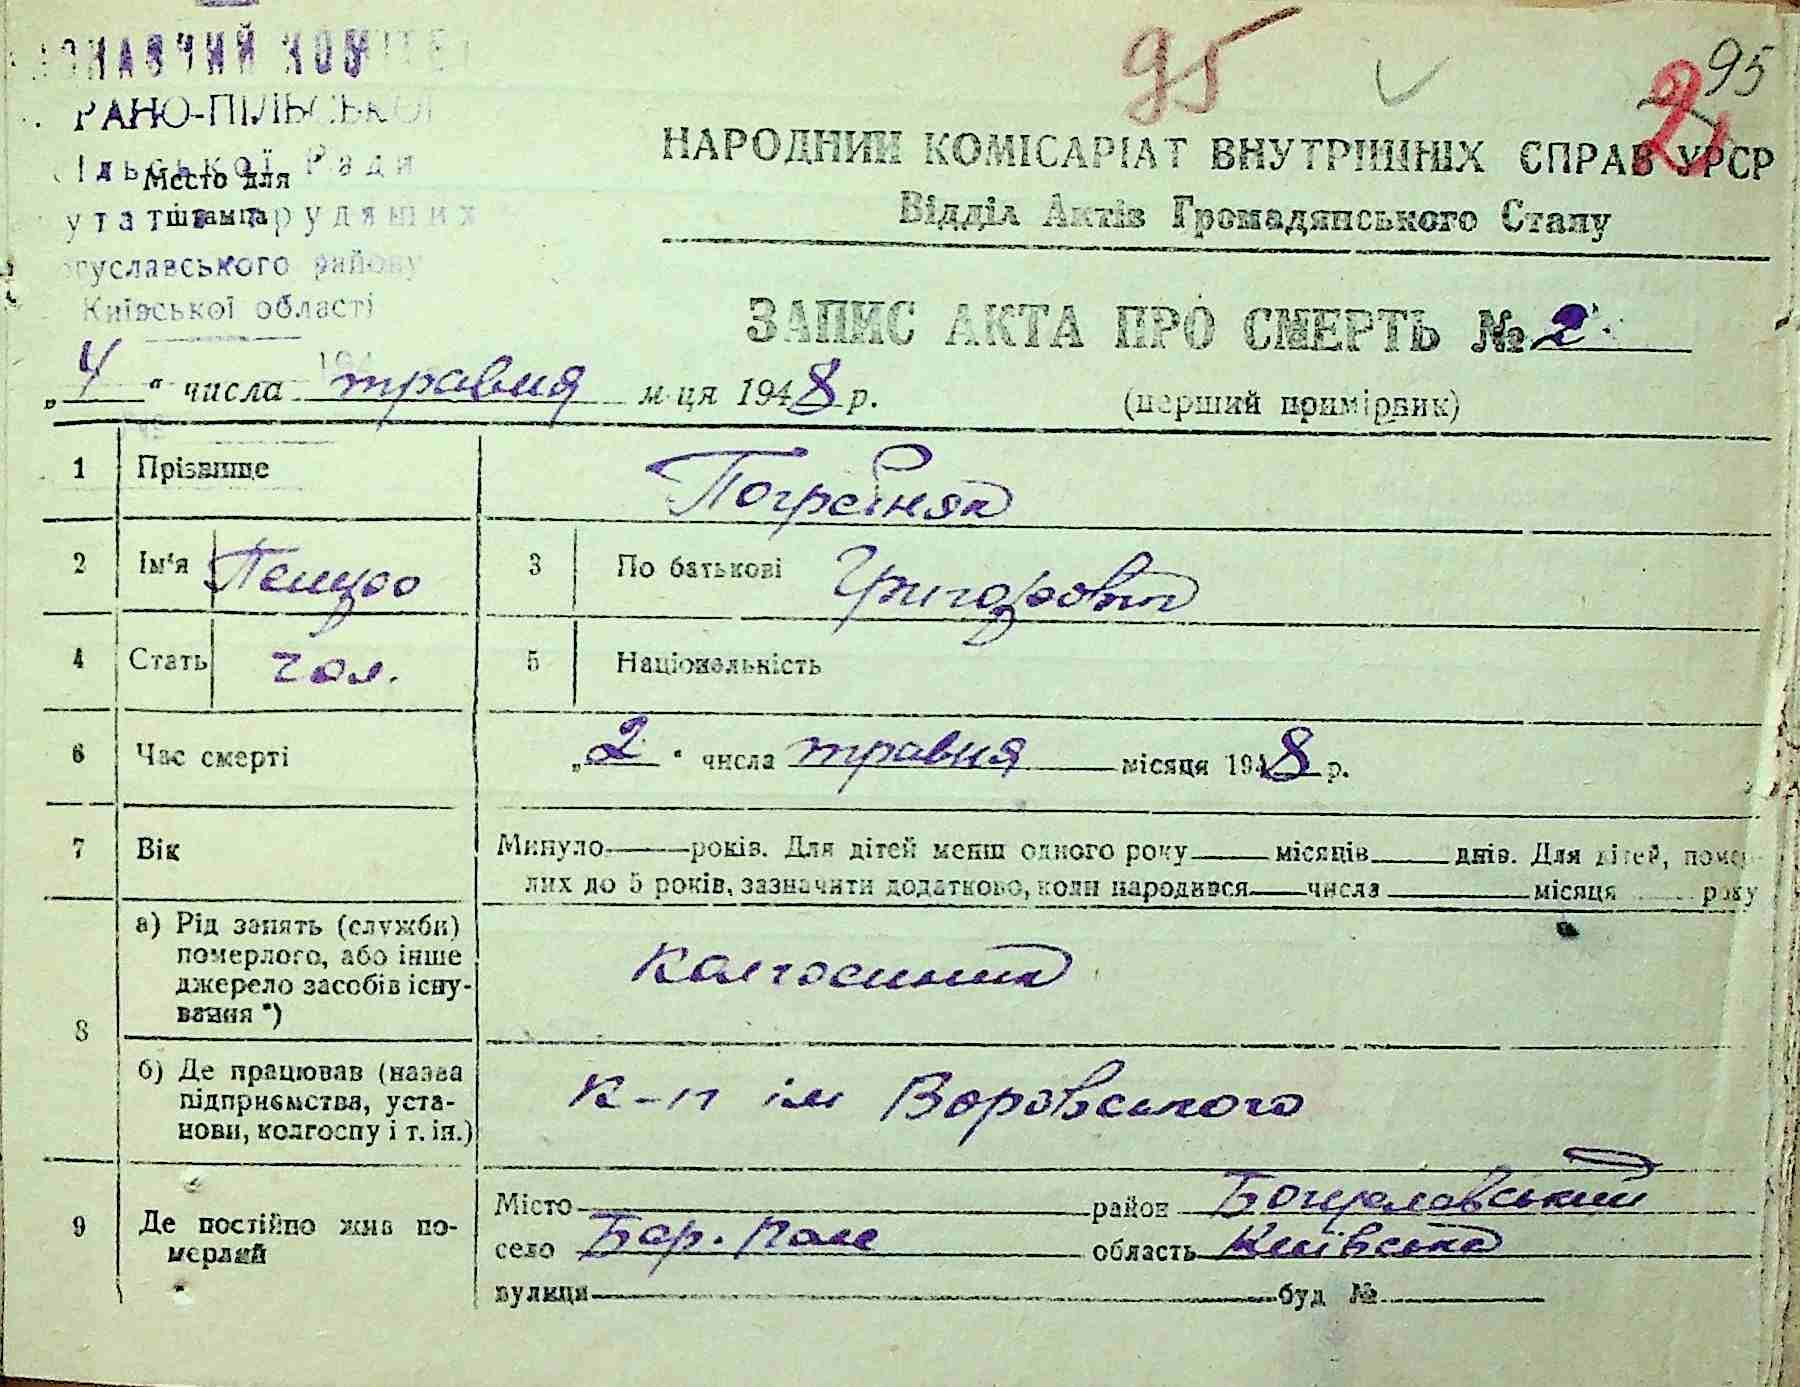 ОНАВЧИЙ КОМІТЕ
РАНО-ПІЛЬСЬКОЇ
ільської Ради
Место для
утатів трудящих
штампа
огуславського району
Київської області
95
95
2
НАРОДНИЙ КОМІСАРІАТ ВНУТРІШНІХ СПРАВ УРСР
Відділ Актів Громадянського Стану
ЗАПИС АКТА ПРО СМЕРТЬ № 2
„4“ числа травня м-ця 1948 р.
(перший примірник)
1 Прізвище Погребняк
2 Ім'я 3 По батькові Григорович
4 Стать чол. 5 Національність
6 Час смерті „2“ числа травня місяця 1948 р.
7 Вік Минуло — років. Для дітей менш одного року — місяців — днів. Для дітей, помер-
лих до 5 років, зазначити додатково, коли народився — числа — місяця — року
8 а) Рід занять (служби)
померлого, або інше
джерело засобів існу-
вання *)
колгоспник
б) Де працював (назва
підприємства, уста-
нови, колгоспу і т. ін.)
к-п ім Воровського
9 Де постійно жив по-
мерлий
Місто — район Богуславський
село Бар. Поле область Київська
вулиця — буд №